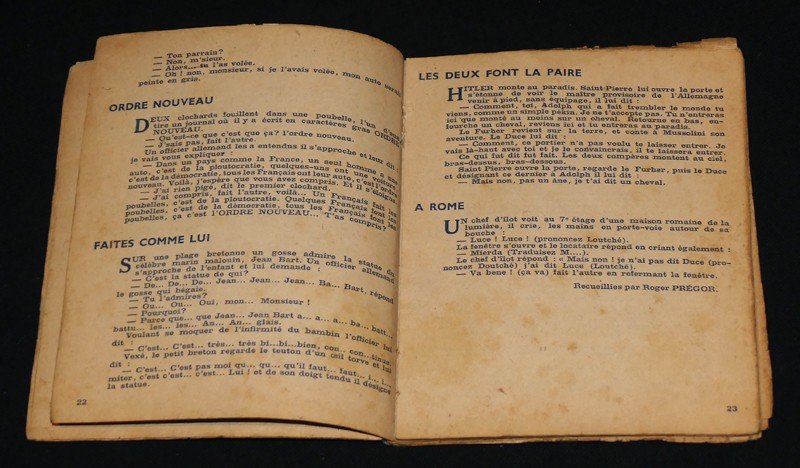 — Ton parrain?
— Non, m'sieur.
— Alors... tu l'as volée.
— Oh! non, monsieur, si je l'avais volée, mon auto serait
peinte en gris.
ORDRE NOUVEAU
DEUX clochards fouillent dans une poubelle, l'un d'eux
tire un journal où il y a écrit en caractères gras ORDRE
NOUVEAU.
— Qu'est-ce que c'est que ça? l'ordre nouveau.
— J'sais pas, fait l'autre.
Un officier allemand les a entendus il s'approche et leur dit :
je vais vous expliquer :
— Dans un pays comme la France, un seul homme a une
auto, c'est de la ploutocratie, quelques-uns ont une voiture
c'est de la démocratie, tous les Français ont leur auto, c'est l'ordre
nouveau. Voilà, j'espère que vous avez compris. Et il s'éloigne
— J'ai rien pigé, dit le premier clochard.
— J'ai compris, fait l'autre, voilà... Un Français fait les
poubelles, c'est de la ploutocratie. Quelques Français font les
poubelles, c'est de la démocratie, tous les Français font les
poubelles, ça c'est l'ORDRE NOUVEAU... T'as compris?
FAITES COMME LUI
SUR une plage bretonne un gosse admire la statue du
célèbre marin malouin, Jean Bart. Un officier allemand
s'approche de l'enfant et lui demande :
— C'est la statue de qui?
— De... De... De... Jean... Jean... Jean... Ba... Bart, répond
le gosse qui bégaie.
— Tu l'admires?
— Ou... Ou... Oui, mon... Monsieur!
— Pourquoi?
— Parce que... que Jean... Jean Bart a... a... a... ba... batt...
battu... les... les... An... An... glais.
Voulant se moquer de l'infirmité du bambin l'officier lui
dit :
— C'est... C'est... très... très bi...bi...bien, con... con...tinue.
Vexé, le petit breton regarde le teuton d'un œil torve et lui
dit :
— C'est... C'est pas moi qu... qu... qu'il faut... faut... i... i...
miter, c'est c'est... c'est... Lui! et de son doigt tendu il désigne
la statue.
22
LES DEUX FONT LA PAIRE
HITLER monte au paradis. Saint-Pierre lui ouvre la porte et
s'étonne de voir le maître provisoire de l'Allemagne
venir à pied, sans équipage, il lui dit :
— Comment, toi, Adolph qui a fait trembler le monde tu
viens, comme un simple pékin. Je ne t'accepte pas. Tu n'entreras
ici que monté au moins sur un cheval. Retourne en bas, en-
fourche un cheval, reviens ici et tu entreras au paradis.
Le Furher revient sur la terre, et conte à Mussolini son
aventure. Le Duce lui dit :
— Comment, ce portier n'a pas voulu te laisser entrer. Je
vais là-haut avec toi et je le convaincrai, il te laissera entrer.
Ce qui fut dit fut fait. Les deux compères montent au ciel,
bras-dessus, bras-dessous.
Saint Pierre ouvre la porte, regarde le Furher, puis le Duce
et désignant ce dernier à Adolph il lui dit :
— Mais non, pas un âne, je t'ai dit un cheval.
A ROME
UN chef d'îlot voit au 7e étage d'une maison romaine de la
lumière, il crie, les mains en porte-voix autour de sa
bouche :
— Luce! Luce! (prononcez Loutché).
La fenêtre s'ouvre et le locataire répond en criant également :
— Mierda (Traduisez M....).
Le chef d'îlot répond : « Mais non! je n'ai pas dit Duce (pro-
noncez Doutché) j'ai dit Luce (Loutché).
— Va bene! (ça va) fait l'autre en refermant la fenêtre.
Recueillies par Roger PRÉGOR.
23